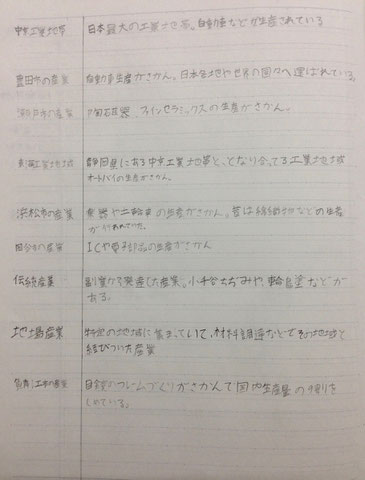 中京工業地帯 日本最大の工業地帯。自動車などが生産されている
豊田市の産業 自動車生産がさかん。日本各地や世界の国々へ運ばれている。
瀬戸市の産業 陶磁器、ファインセラミックスの生産がさかん。
東海工業地域 静岡県にある中京工業地帯と、となり合ってる工業地域
オートバイの生産がさかん。
浜松市の産業 楽器や二輪車の生産がさかん。昔は綿織物などの生産
が行われていた。
ICや電子部品の生産がさかん
伝統産業 副業から発達した産業。小千谷ちぢみや、輪島塗などが
ある。
地場産業 特定の地域に集まっていて、材料調達などでその地域と
結びついた産業
のフレームづくりがさかんで国内生産量の9割を
しめている。